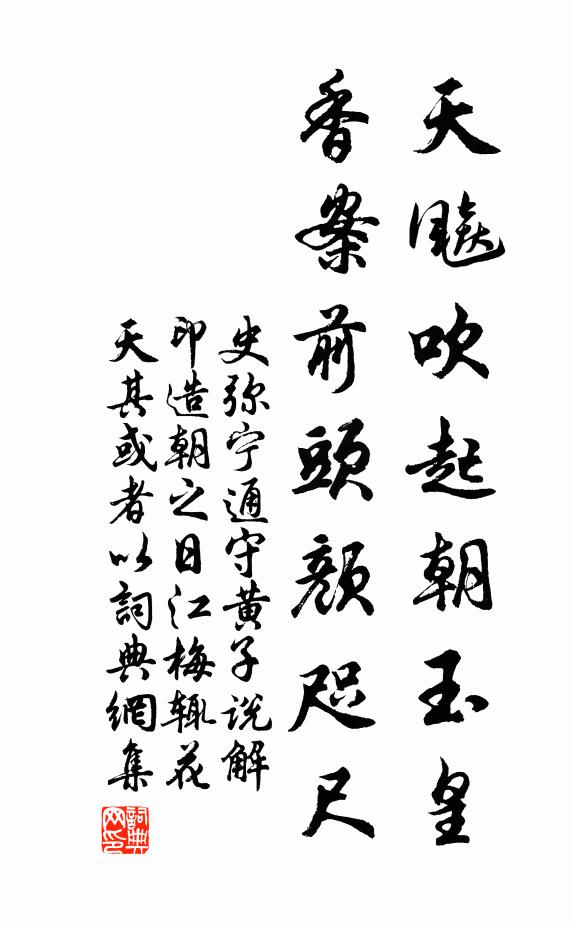 天飈吹起朝玉皇
香案前頭顔咫尺
史弥宁通守黄子说解
印造朝之日江梅辄花
天其或者以詞典網集
詞典网印